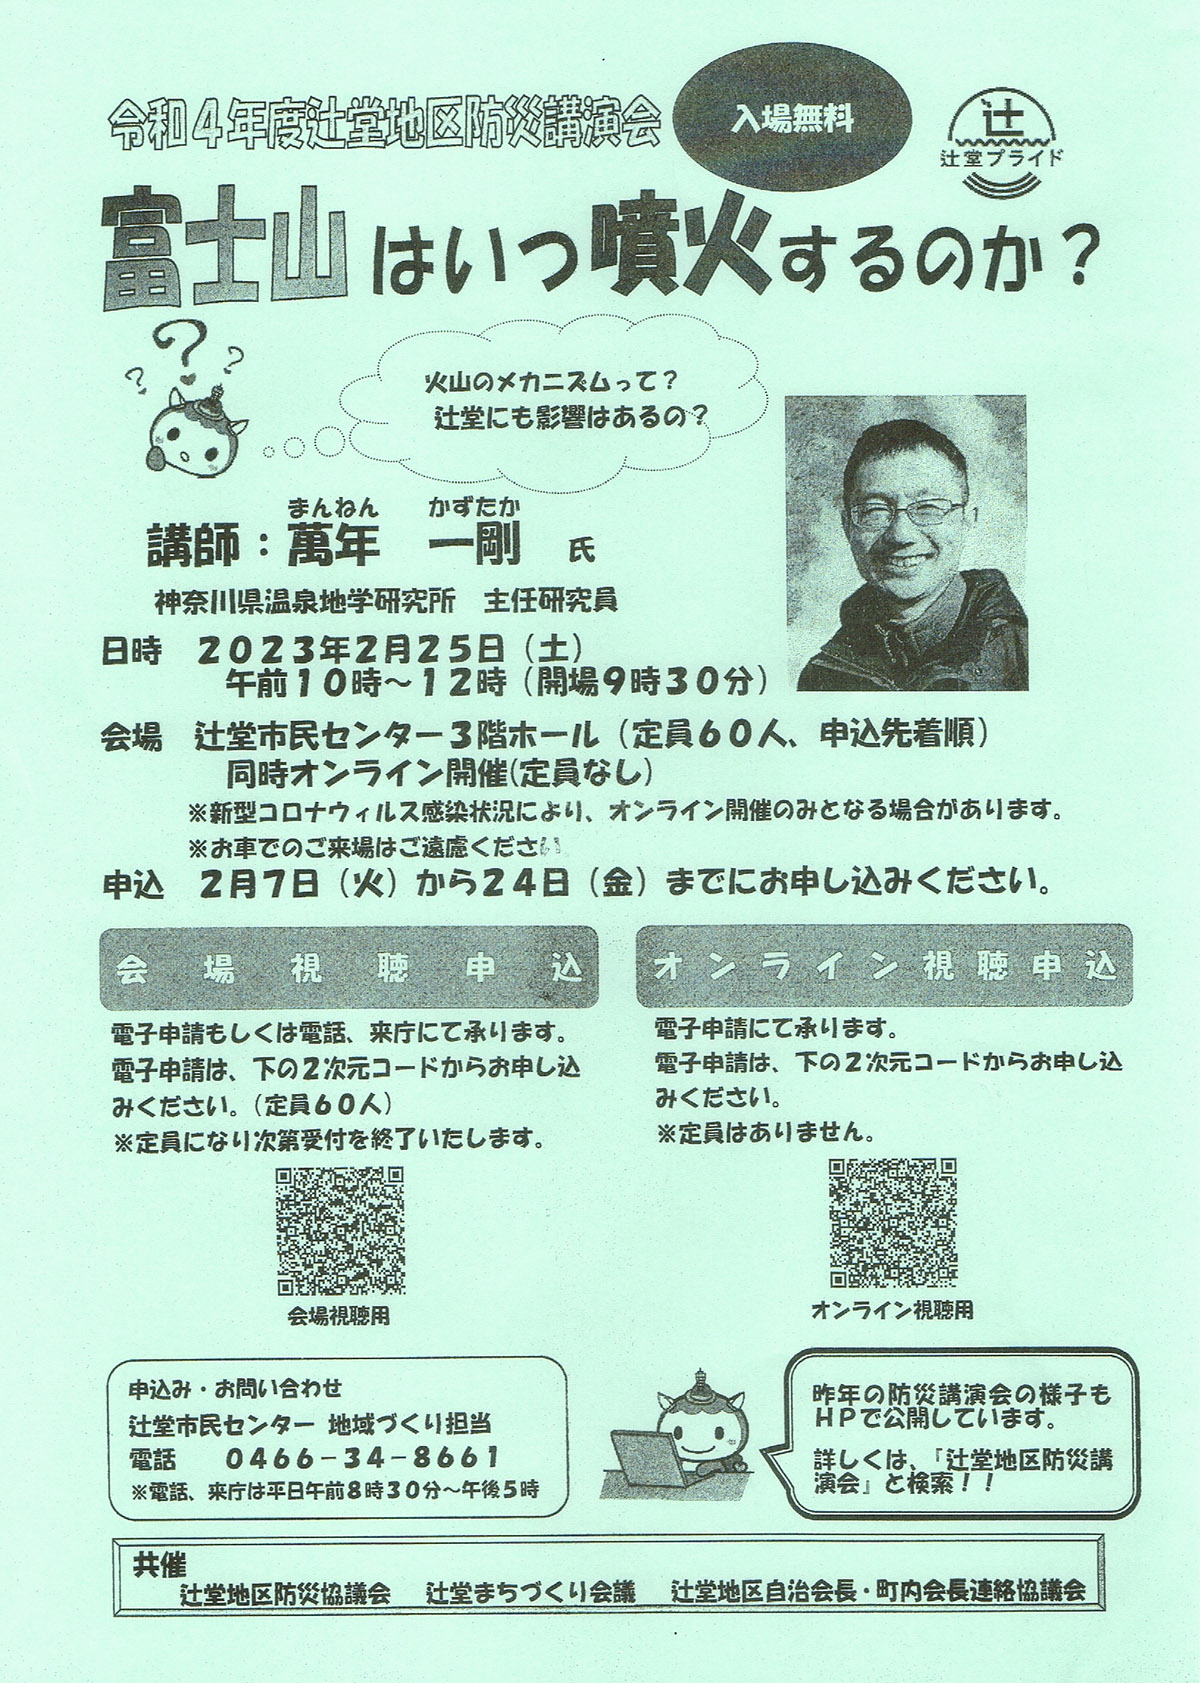 令和４年度辻堂地区防災講演会
入場無料
辻
辻堂プライド
富士山はいつ噴火するのか？
火山のメカニズムって？
辻堂にも影響はあるの？
まんねん　かずたか
講師：萬年　一剛　氏
神奈川県温泉地学研究所　主任研究員
日時　２０２３年２月２５日（土）
午前１０時～１２時（開場９時３０分）
会場　辻堂市民センター３階ホール（定員６０人、申込先着順）
同時オンライン開催(定員なし)
※新型コロナウィルス感染状況により、オンライン開催のみとなる場合があります。
※お車でのご来場はご遠慮ください
申込　２月７日（火）から２４日（金）までにお申し込みください。
会場視聴申込
電子申請もしくは電話、来庁にて承ります。
電子申請は、下の２次元コードからお申し込
みください。（定員６０人）
※定員になり次第受付を終了いたします。
会場視聴用
オンライン視聴申込
電子申請にて承ります。
電子申請は、下の２次元コードからお申し込
みください。
※定員はありません。
オンライン視聴用
申込み・お問い合わせ
辻堂市民センター 地域づくり担当
電話　０４６６－３４－８６６１
※電話、来庁は平日午前８時３０分～午後５時
昨年の防災講演会の様子も
ＨＰで公開しています。
詳しくは、『辻堂地区防災講
演会』と検索！！
共催
辻堂地区防災協議会　辻堂まちづくり会議　辻堂地区自治会長・町内会長連絡協議会